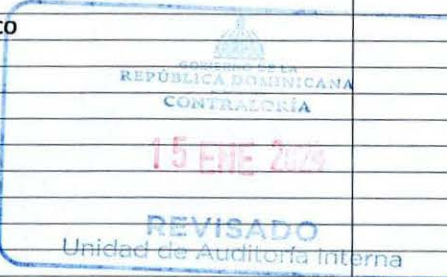 CO
GOBIERNO DE LA
REPÚBLICA DOMINICANA
CONTRALORÍA
15 ENE
REVISADO
Unidad de Auditoría Interna